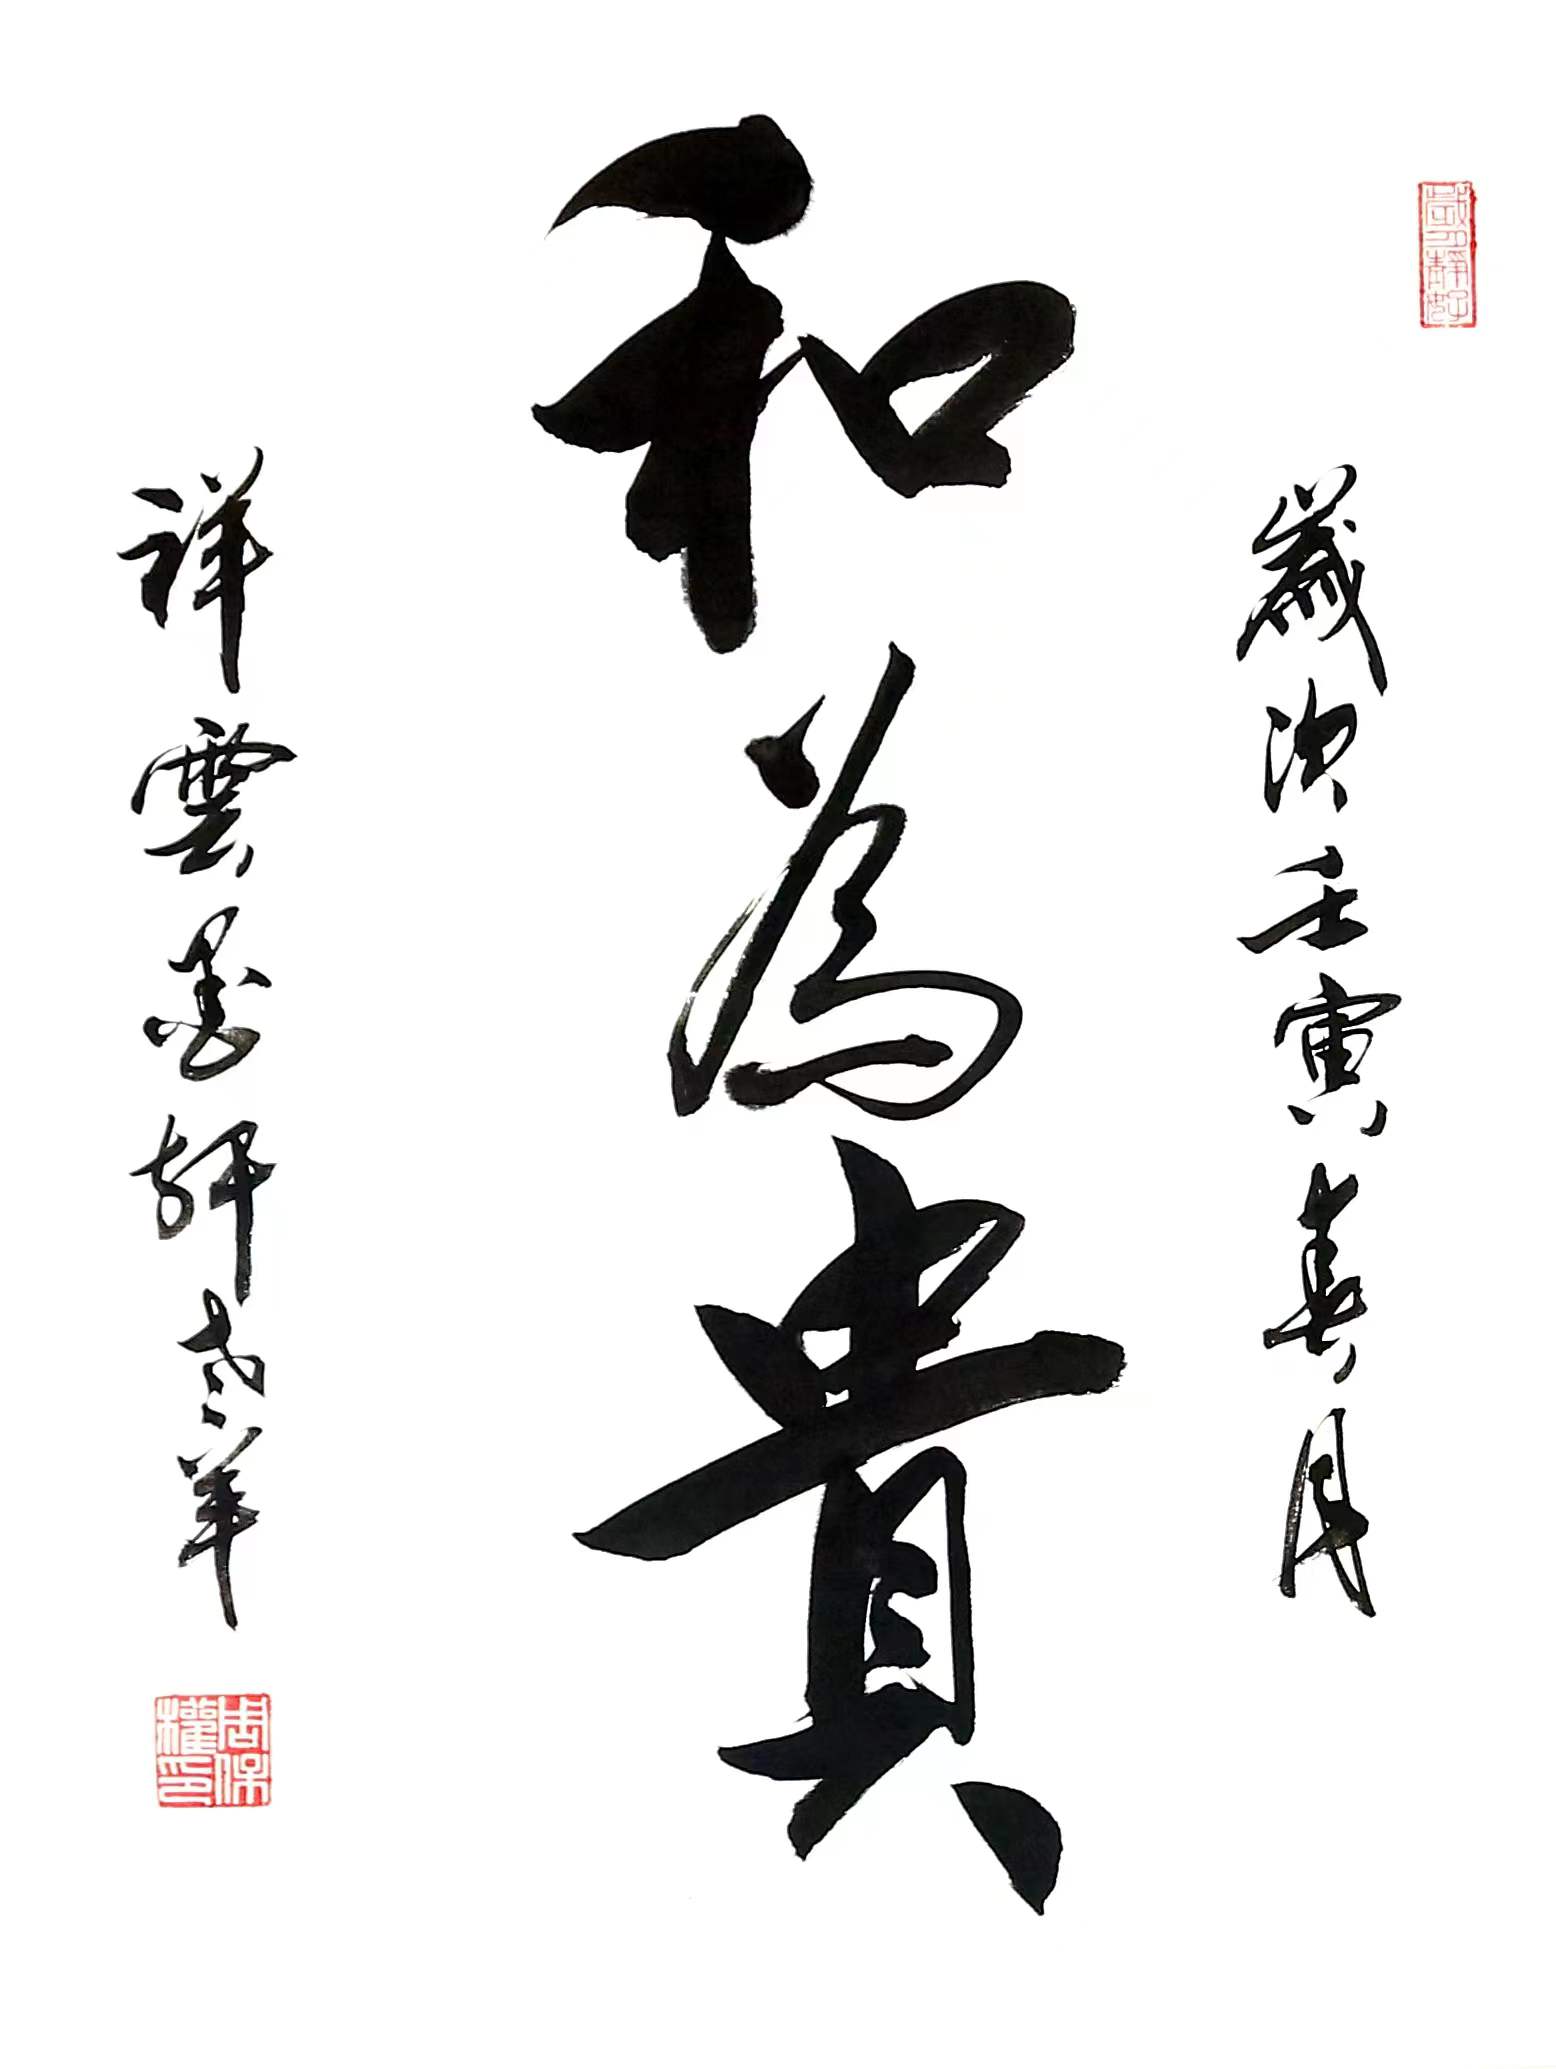 歲次壬寅春月
和為貴
祥雲墨軒老羊
歲月靜好
周保權印